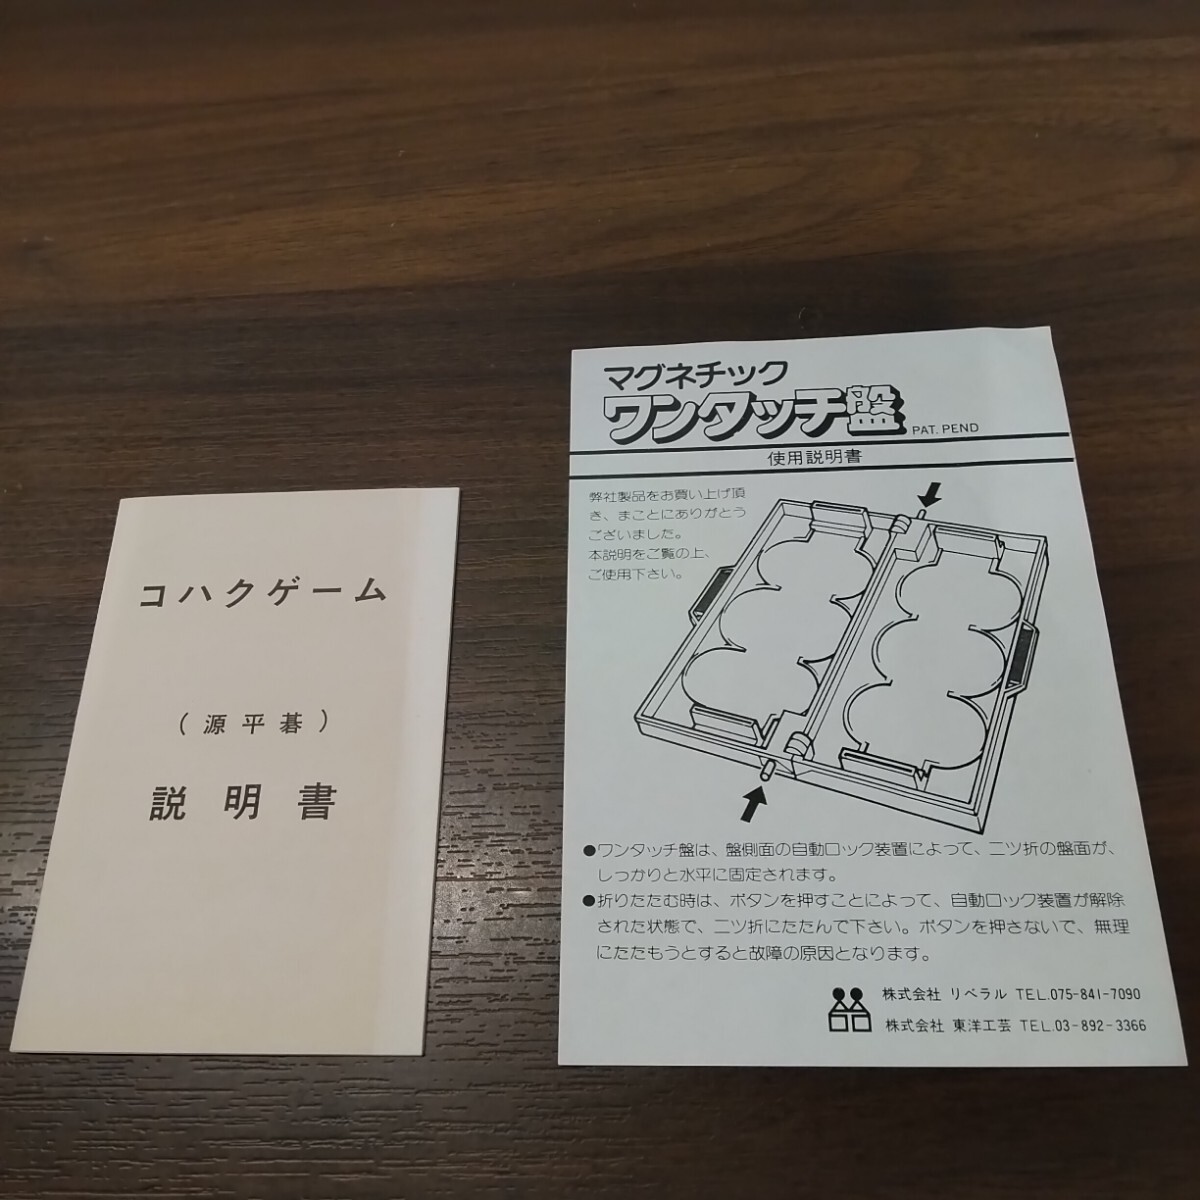 コハクゲーム
(源平碁)
説明書
マグネチック
ワンタッチ盤 PAT. PEND
使用説明書
弊社製品をお買い上げ頂
き、まことにありがとう
ございました。
本説明をご覧の上、
ご使用下さい。
●ワンタッチ盤は、盤側面の自動ロック装置によって、二ツ折の盤面が、
しっかりと水平に固定されます。
●折りたたむ時は、ボタンを押すことによって、自動ロック装置が解除
された状態で、二ツ折にたたんで下さい。ボタンを押さないで、無理
にたたもうとすると故障の原因となります。
株式会社 リベラル TEL.075-841-7090
株式会社 東洋工芸 TEL.03-892-3366